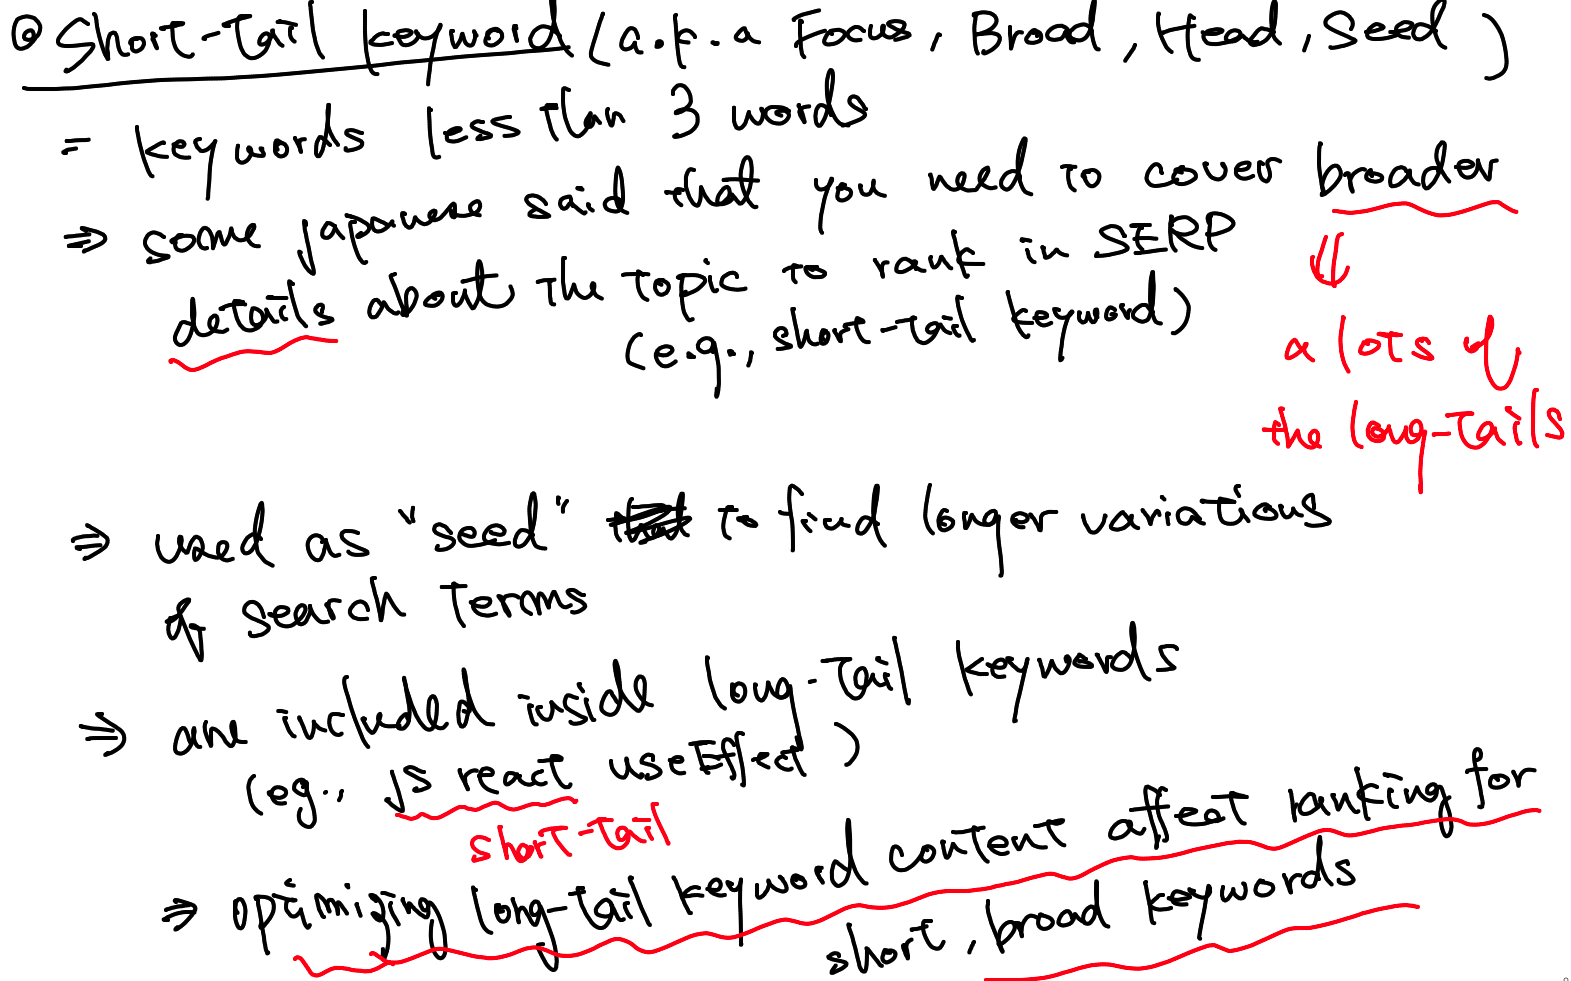 Short-Tail keyword (a.k.a Focus, Broad, Head, Seed)
= keywords less than 3 words
⇒ some japanese said that you need to cover broader
details about the topic to rank in SERP
(e.g., short-tail keyword)
⇓
a lots of
the long-Tails
⇒ used as "seed" to find longer variations
of search Terms
⇒ are included inside long-Tail keywords
(eg., JS react useEffect)
short-tail
⇒ optimizing long-tail keyword content affect ranking for
short, broad keywords